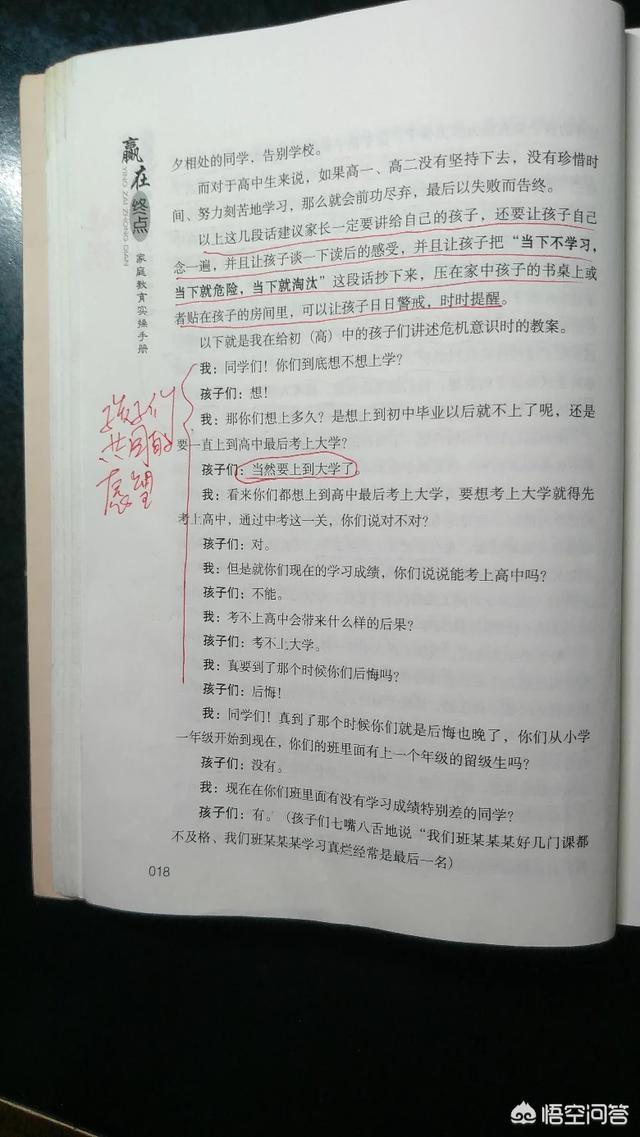 赢在终点
YING ZAI ZHONG DIAN
家庭教育实操手册
夕相处的同学，告别学校。
而对于高中生来说，如果高一、高二没有坚持下去，没有珍惜时
间、努力刻苦地学习，那么就会前功尽弃，最后以失败而告终。
以上这几段话建议家长一定要讲给自己的孩子，还要让孩子自己
念一遍，并且让孩子谈一下读后的感受，并且让孩子把“当下不学习，
当下就危险，当下就淘汰”这段话抄下来，压在家中孩子的书桌上或
者贴在孩子的房间里，可以让孩子日日警戒，时时提醒。
以下就是我在给初（高）中的孩子们讲述危机意识时的教案。
我：同学们！你们到底想不想上学？
孩子们：想！
我：那你们想上多久？是想上到初中毕业以后就不上了呢，还是
要一直上到高中最后考上大学？
孩子们：当然要上到大学了。
我：看来你们都想上到高中最后考上大学，要想考上大学就得先
考上高中，通过中考这一关，你们说对不对？
孩子们：对。
我：但是就你们现在的学习成绩，你们说说能考上高中吗？
孩子们：不能。
我：考不上高中会带来什么样的后果？
孩子们：考不上大学。
我：真要到了那个时候你们后悔吗？
孩子们：后悔！
我：同学们！真到了那个时候你们就是后悔也晚了，你们从小学
一年级开始到现在，你们的班里面有上一个年级的留级生吗？
孩子们：没有。
我：现在在你们班里面有没有学习成绩特别差的同学？
孩子们：有。（孩子们七嘴八舌地说“我们班某某某好几门课都
不及格、我们班某某某学习真烂经常是最后一名）
018
孩子们
共同的
愿望
悟空问答